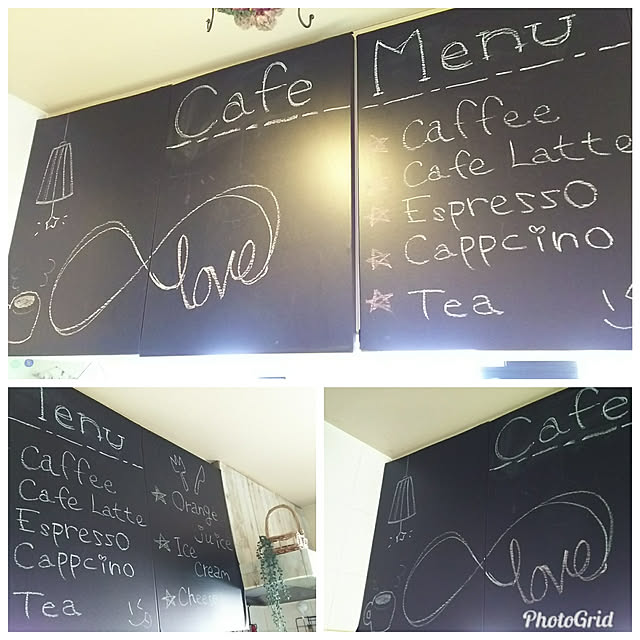 Cafe
love
Menu
Caffee
Cafe Latte
Espresso
Cappcino
Tea
enu
Caffee
Cafe Latte
Espresso
Cappcino
Tea
Orange
juice
Ice
Cream
Cheese
Cafe
love
PhotoGrid